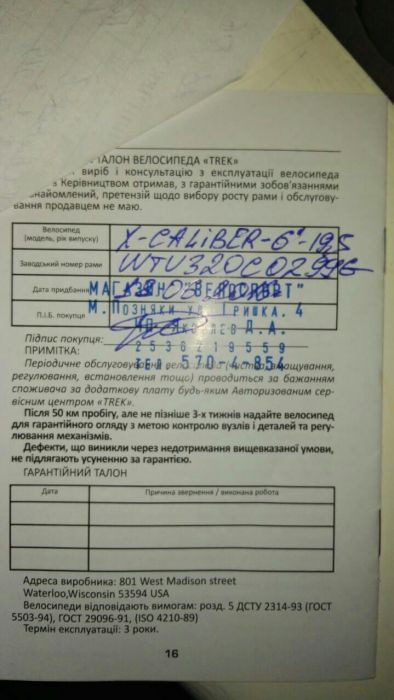 ТАЛОН ВЕЛОСИПЕДА «TREK»
виріб і консультацію з експлуатації велосипеда
Керівництвом отримав, з гарантійними зобов'язаннями
ознайомлений, претензій щодо вибору росту рами і обслугову-
вання продавцем не маю.
Велосипед
(модель, рік випуску)
X-CALiBER-6" 19,5
Заводський номер рами
WTU320C0299G
Дата придбання
МАГАЗИН "ВЕЛОСПОРТ"
М. Позняки ул. Гришка. 4
П.І.Б. покупця
Яковлев Д.А.
Підпис покупця:
2536219559
ПРИМІТКА:
тел. 570-4-854
Періодичне обслуговування велосипеда (чистка, змащування,
регулювання, встановлення тощо) проводиться за бажанням
споживача за додаткову плату будь-яким Авторизованим сер-
вісним центром «TREK».
Після 50 км пробігу, але не пізніше 3-х тижнів надайте велосипед
для гарантійного огляду з метою контролю вузлів і деталей та регу-
лювання механізмів.
Дефекти, що виникли через недотримання вищевказаної умови,
не підлягають усуненню за гарантією.
ГАРАНТІЙНИЙ ТАЛОН
Дата Причина звернення / виконана робота
Адреса виробника: 801 West Madison street
Waterloo,Wisconsin 53594 USA
Велосипеди відповідають вимогам: розд. 5 ДСТУ 2314-93 (ГОСТ
5503-94), ГОСТ 29096-91, (ISO 4210-89)
Термін експлуатації: 3 роки.
16